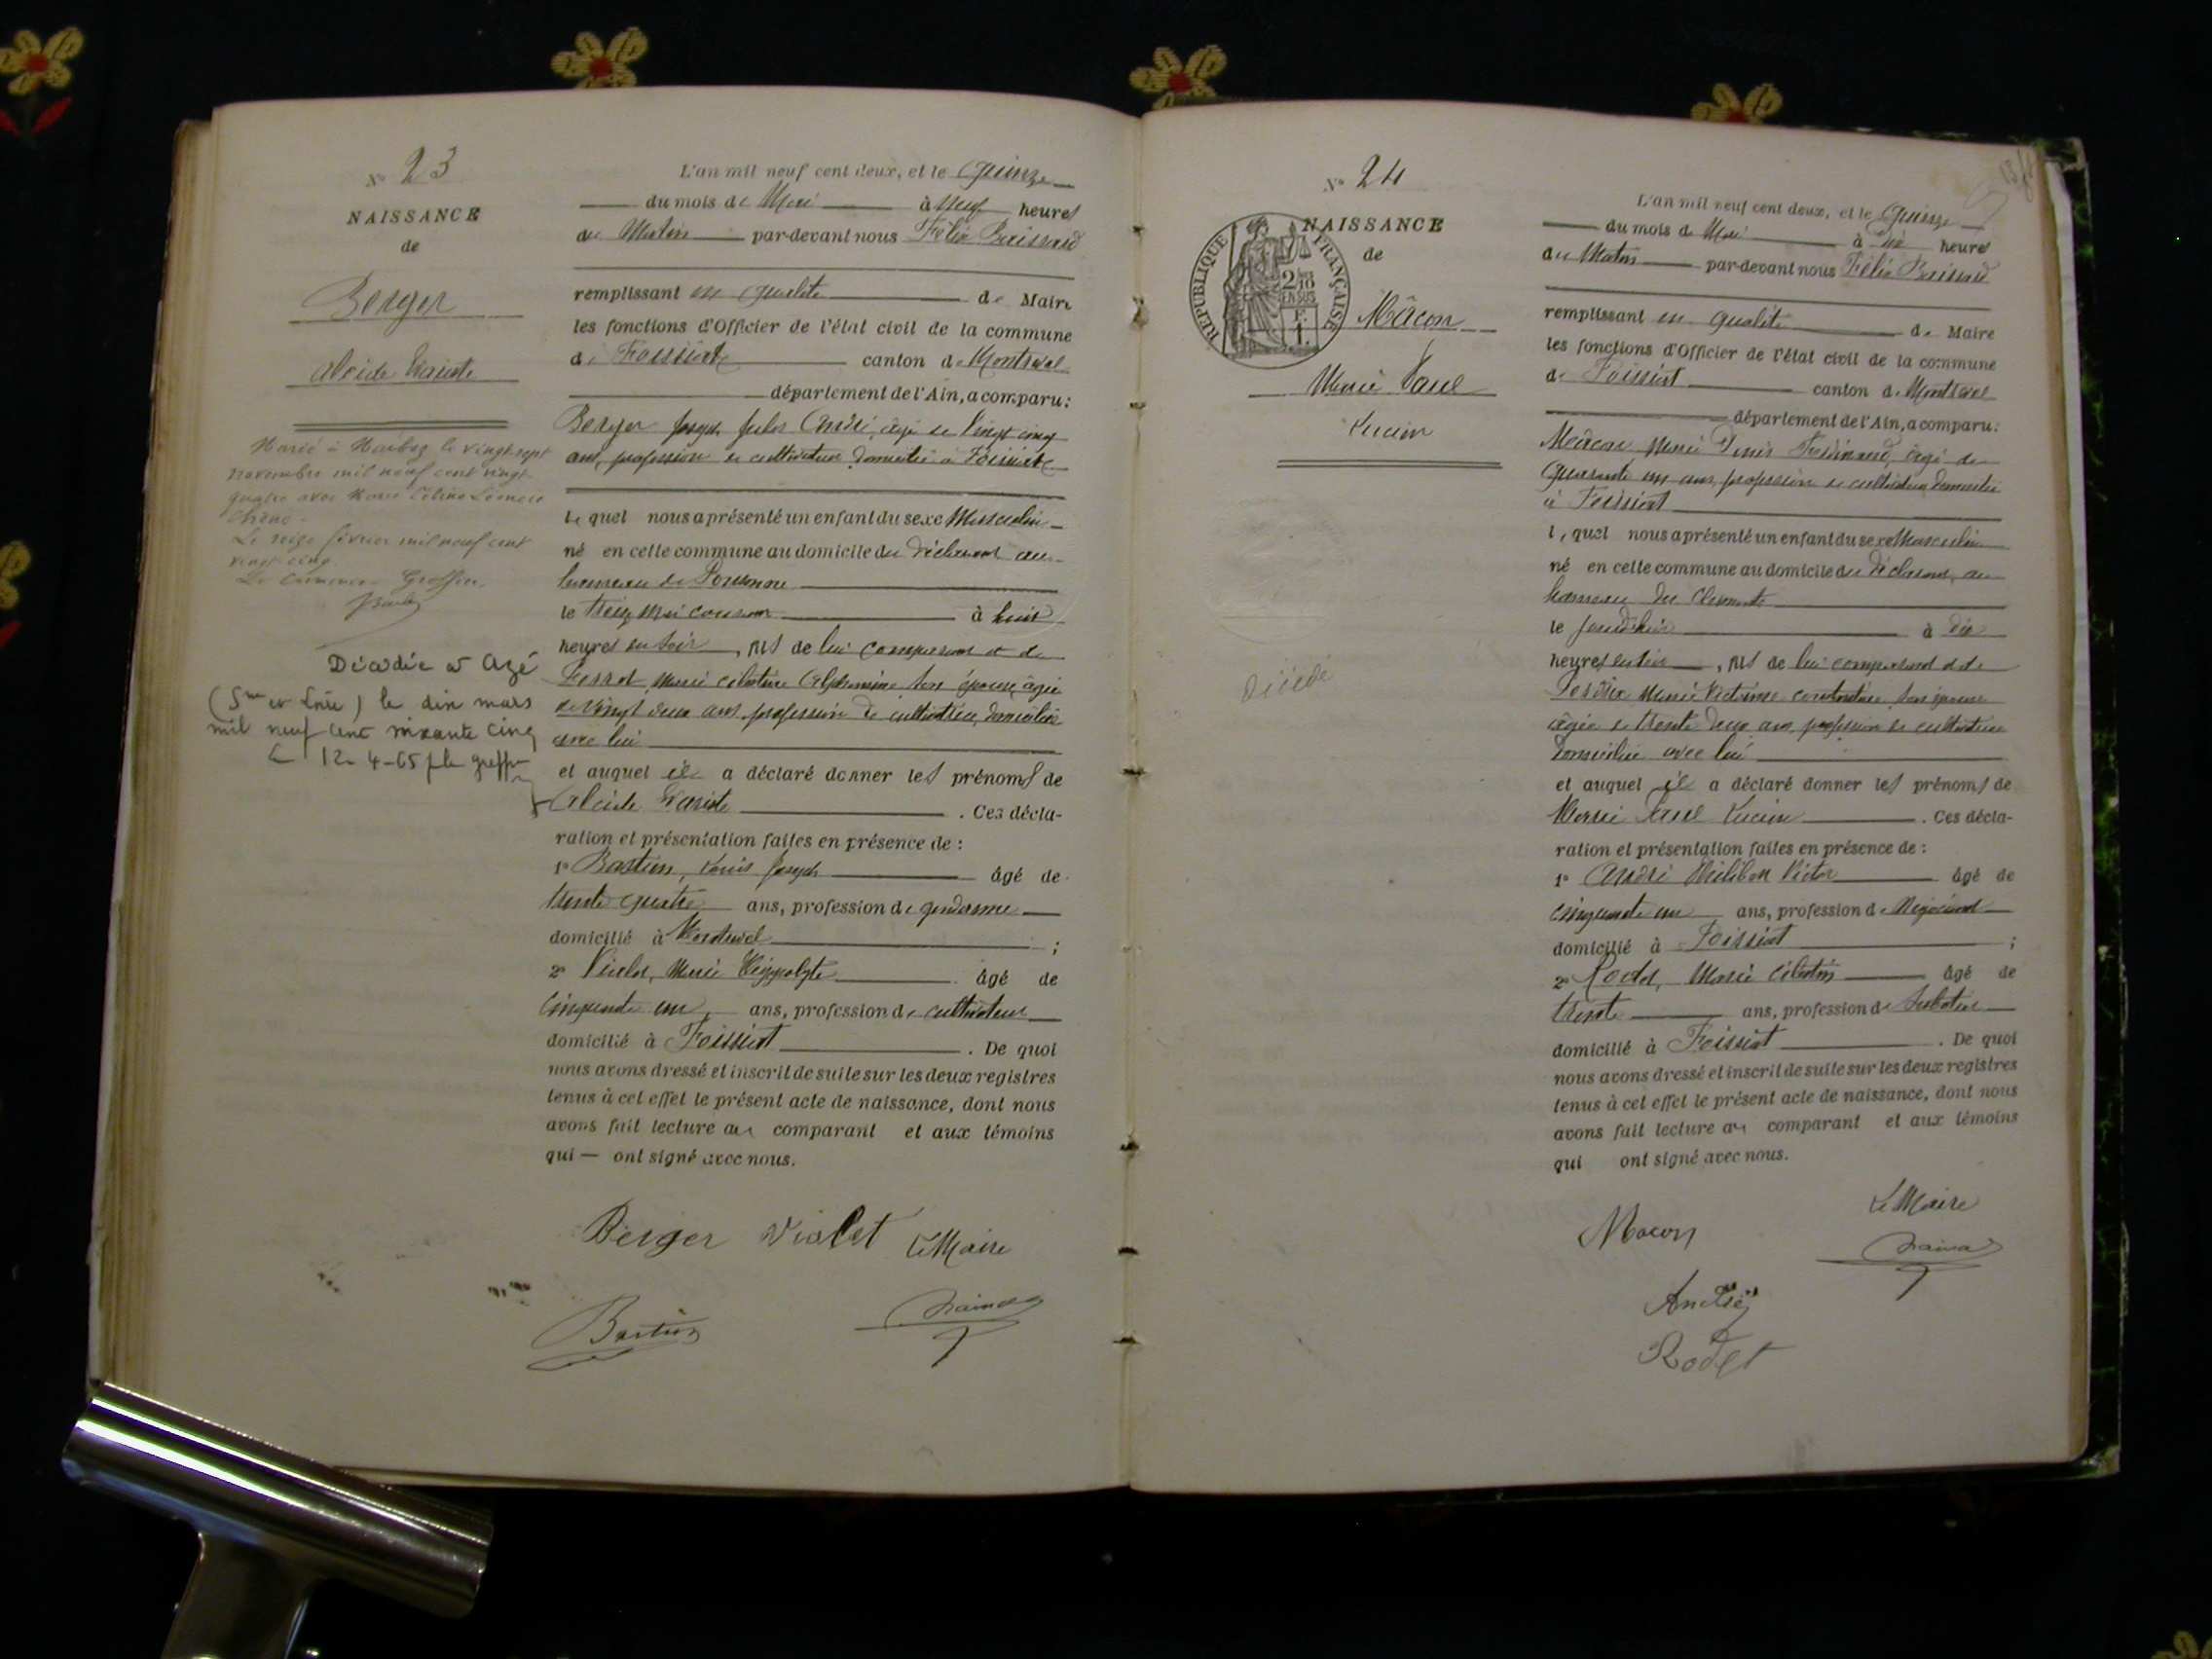 N° 23
NAISSANCE
de
Berger
Alcide Evariste
Marié à Marboz le vingt-sept
novembre mil neuf cent vingt-
quatre avec Marie Céline Léonore
Chêne -
Le seize février mil neuf cent
vingt cinq
Le Greffier
Décédé à Azé
(Sne et Loire) le dix mars
mil neuf cent soixante cinq
Le 12-4-65 p le greffier
L'an mil neuf cent deux, et le quinze
du mois de Mai à Neuf heures
du Matin par-devant nous Félix
remplissant en qualité de Maire
les fonctions d'Officier de l'état civil de la commune
de Foissiat canton de Montrevel
département de l'Ain, a comparu:
Berger Joseph Jules André, âgé de Vingt cinq
ans, profession de cultivateur domicilié à Foissiat
Lequel nous a présenté un enfant du sexe Masculin
né en cette commune au domicile du déclarant au
hameau de
le treize Mai courant à huit
heures du soir, fils de lui comparant et de
Marie Célestine Alphonsine son épouse, âgée
de vingt deux ans, profession de cultivatrice, domiciliée
avec lui
et auquel il a déclaré donner les prénoms de
Alcide Evariste. Ces décla-
ration et présentation faites en présence de :
1° Bastien, Louis Joseph âgé de
trente quatre ans, profession de gendarme
domicilié à Montrevel ;
2° Violet, Marie Hippolyte âgé de
cinquante un ans, profession de cultivateur
domicilié à Foissiat. De quoi
nous avons dressé et inscrit de suite sur les deux registres
tenus à cet effet le présent acte de naissance, dont nous
avons fait lecture au comparant et aux témoins
qui — ont signé avec nous.
Berger Violet Le Maire
Bastien
N° 24
NAISSANCE
de
RÉPUBLIQUE FRANÇAISE
Mâcon
Marie Paul
Lucien
Décédé
L'an mil neuf cent deux, et le quinze
du mois de Mai à dix heures
du Matin par-devant nous Félix
remplissant en qualité de Maire
les fonctions d'Officier de l'état civil de la commune
de Foissiat canton de Montrevel
département de l'Ain, a comparu:
Mâcon Marie Denis Ferdinand, âgé de
quarante un ans, profession de cultivateur domicilié
à Foissiat
Lequel nous a présenté un enfant du sexe Masculin
né en cette commune au domicile du déclarant, au
hameau des
le à dix
heures du soir, fils de lui comparant et de
Marie Victorine son épouse
âgée de trente deux ans, profession de cultivatrice
domiciliée avec lui
et auquel il a déclaré donner les prénoms de
Marie Paul Lucien. Ces décla-
ration et présentation faites en présence de :
1° André Philibert Victor âgé de
cinquante un ans, profession de Négociant
domicilié à Foissiat ;
2° Rodet, Marie Célestin âgé de
trente ans, profession de
domicilié à Foissiat. De quoi
nous avons dressé et inscrit de suite sur les deux registres
tenus à cet effet le présent acte de naissance, dont nous
avons fait lecture au comparant et aux témoins
qui ont signé avec nous.
Macon Le Maire
André
Rodet